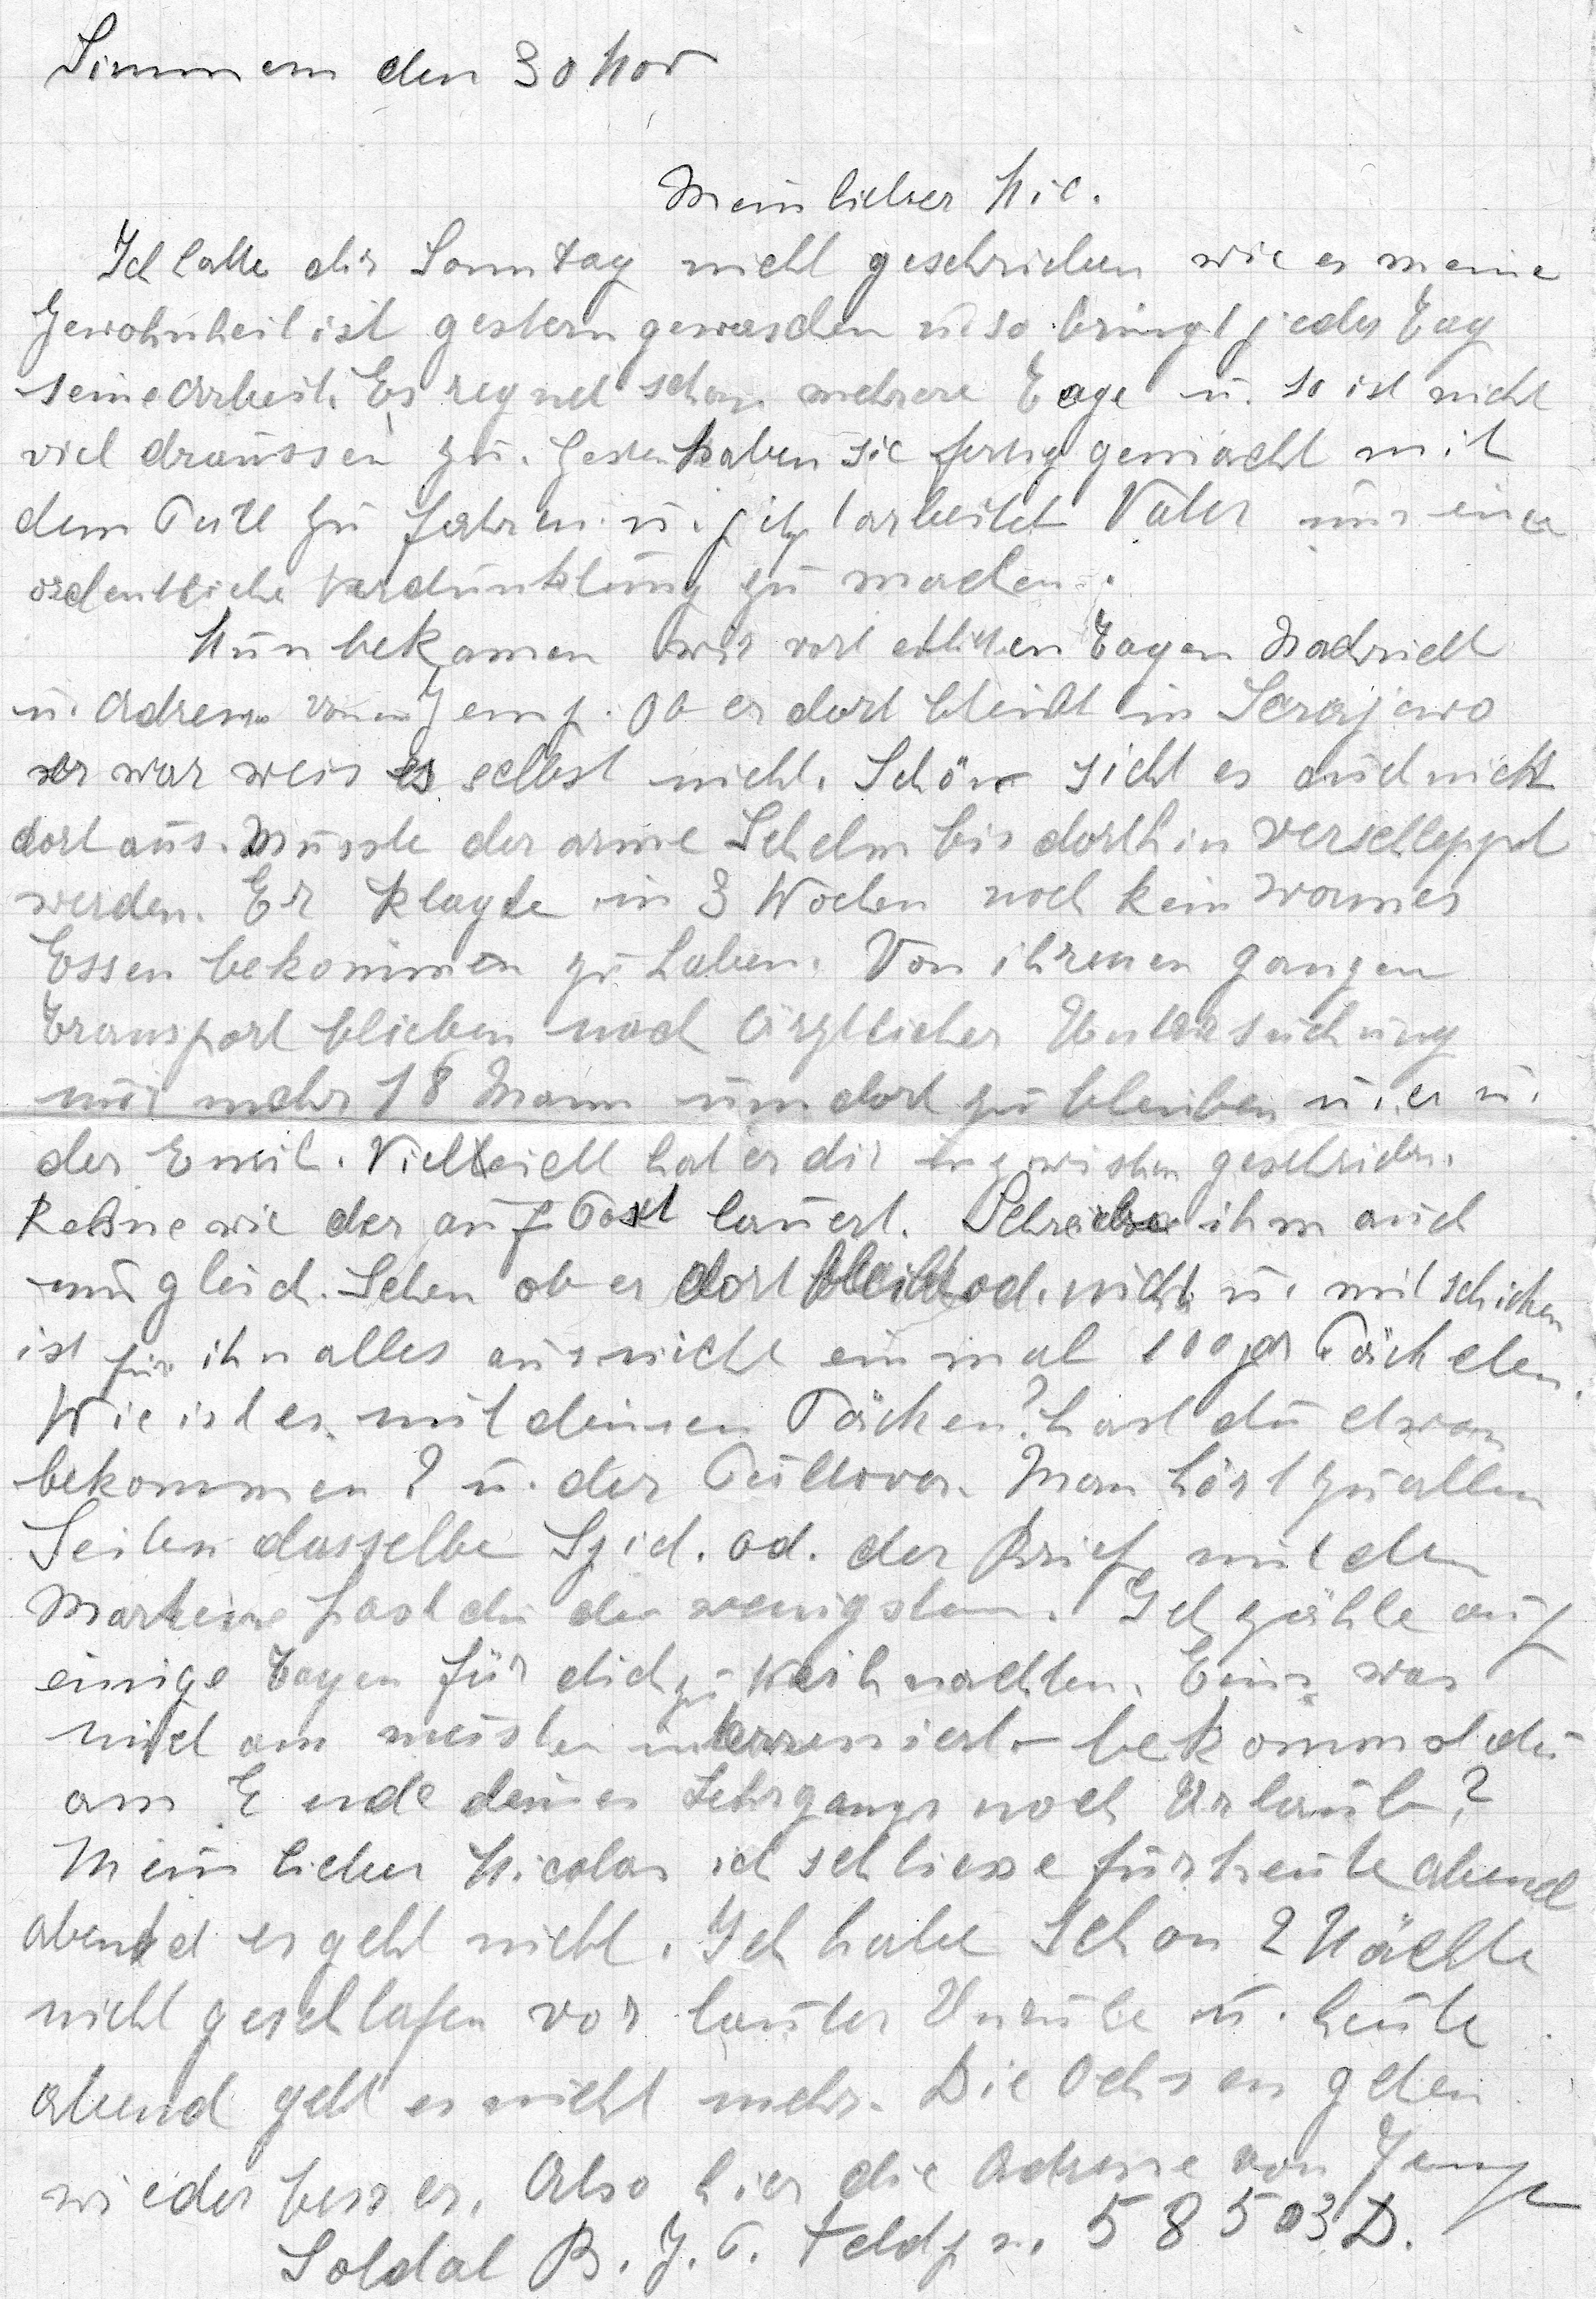 Simmern den 30 Nov
Mein lieber Nic.
Ich hatte dir Sonntag nicht geschrieben wie es meine
Gewohnheit ist gestern gewaschen u. so bringt jeder Tag
seine Arbeit. Es regnet schon mehrere Tage u. so ist nicht
viel draussen zu. Gestern haben sie fertig gemacht mit
dem Pull zu fahren u. jetzt arbeitet Vater uns eine
ordentliche Verdunklung zu machen.
Nun bekamen wir vor etlichen Tagen Nachricht
u. Adresse von Jemp. Ob er dort bleibt in Serajewo
er war weis es selbst nicht. Schön sieht es auch nicht
dort aus. Musste der arme Schelm bis dorthin verschleppt
werden. Er klagte in 3 Wochen noch kein warmes
Essen bekommen zu haben. Von ihrem ganzen
Transport blieben nach ärztlicher Untersuchung
nur mehr 18 Mann um dort zu bleiben u. er u.
der Emil. Vielleicht hat er dir inzwischen geschrieben.
Kenne wie der auf Post lauert. Schreibe ihm auch
mir gleich. Sehen ob er dort bleibt od. nicht u. mit schicken
ist für ihn alles aus nicht einmal 100 gr Päckchen.
Wie ist es mit deinen Päcken? hast du etwas
bekommen? u. der Pullover. Man hört zu allen
Seiten dasselbe od. der Brief mit den
Marken hast du die wenigsten. Ich zähle auf
einige Tagen für dich zu Weihnachten. Eins was
mich am meisten interressiert bekommst du
am Ende deines Lehrgangs noch Urlaub?
Mein lieber Nicolas ich schliesse für heute abend
abend es geht nicht. Ich habe schon 2 Nächte
nicht geschlafen vor lauter Unruhe u. heute
abend geht es nicht mehr. Die Ochsen gehen
wieder besser. Also hier die Adresse von Jemp
Soldat B. J. P. Feldp n. 58503 D.